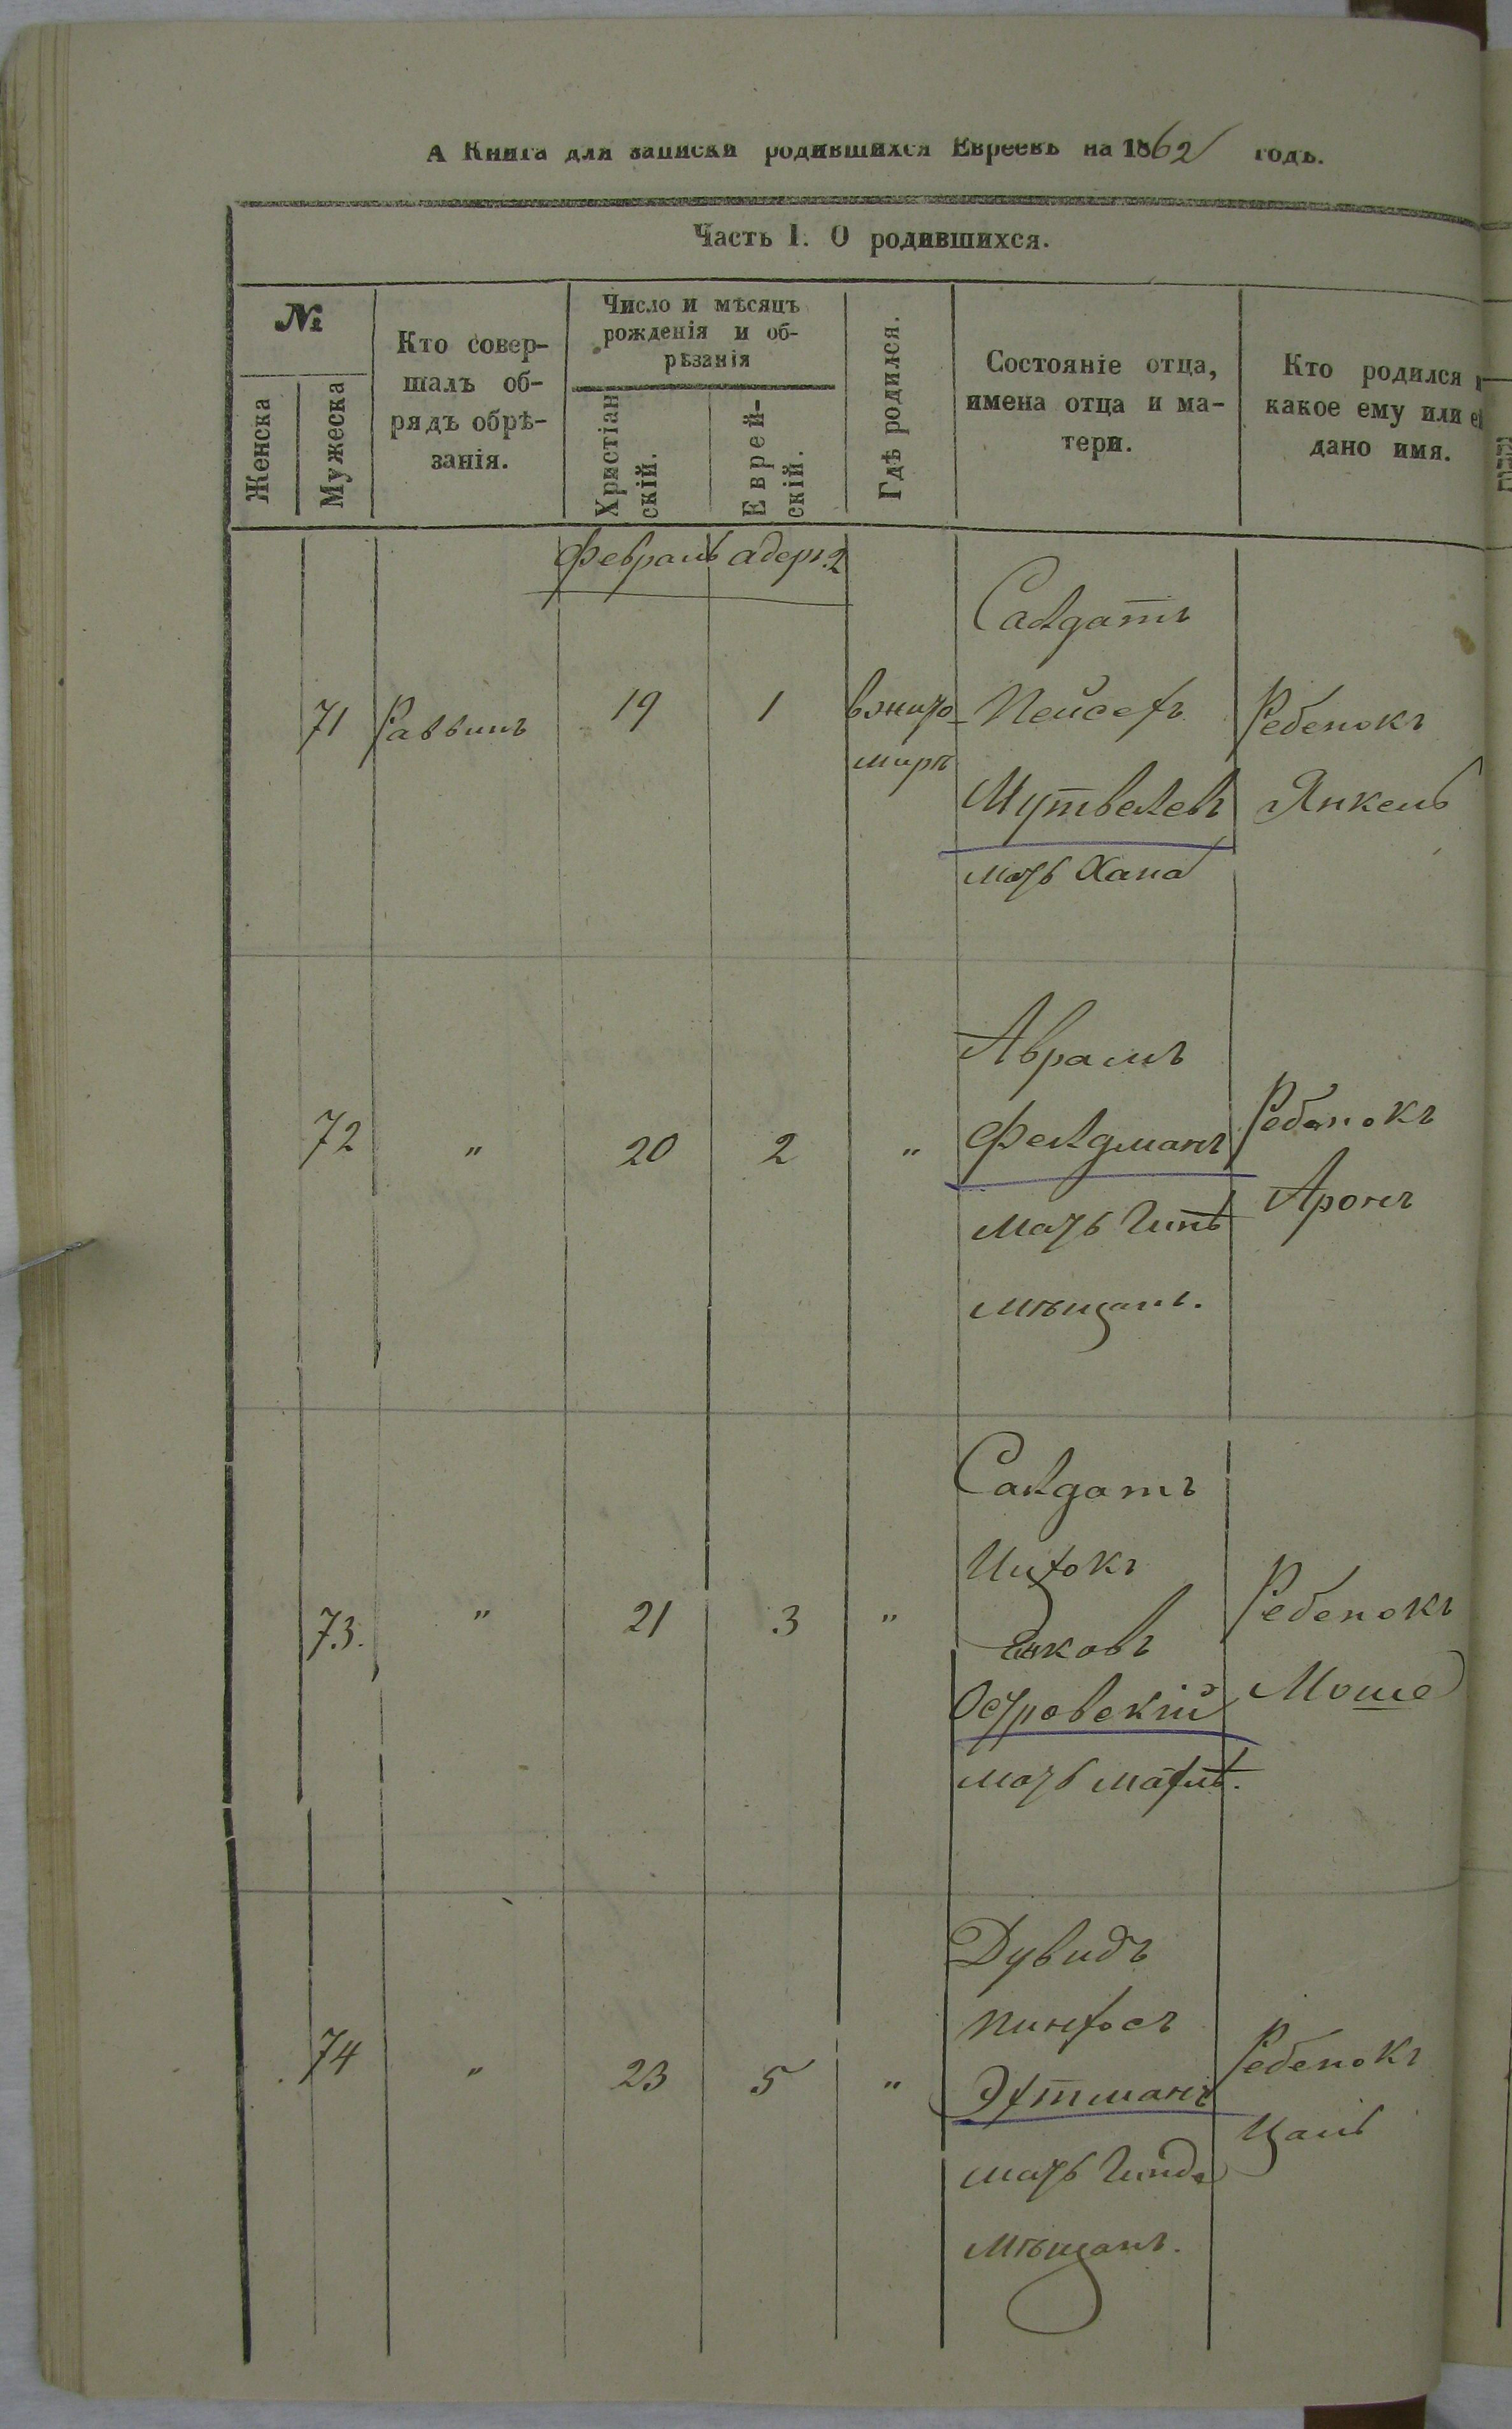 А Книга для записки родившихся Евреевъ на 1862 годъ.
Часть I. О родившихся.
№
Женска
Мужеска
Кто совер-
шалъ об-
рядъ обрѣ-
занія.
Число и мѣсяцъ
рожденія и об-
рѣзанія
Христіан
скій.
Еврей-
скій.
Гдѣ родился.
Состояніе отца,
имена отца и ма-
тери.
Кто родился и
какое ему или ей
дано имя.
февраль адеръ 2
71 Раввинъ 19 1
мирѣ
Салдатъ
Пейсехъ
Мутвелевъ
мать Хана
Ребенокъ
Янкель
72 " 20 2 "
Аврамъ
Фелдманъ
мать
мѣщанъ.
Ребенокъ
Аронъ
73. " 21 3 "
Салдатъ
Ицхокъ
Янковъ
Островскій
мать
Ребенокъ
Моше
74 " 23 5 "
Дувидъ
Пинхосъ
Эхтманъ
мать Гинда
мѣщанъ.
Ребенокъ
Цаль